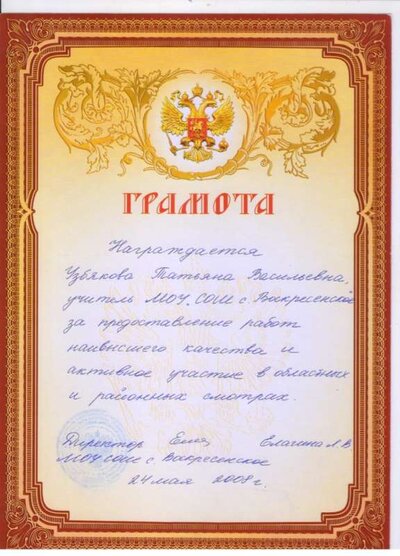 ГРАМОТА
Награждается
Узбякова Татьяна Васильевна,
учитель МОУ СОШ с Воскресенское
за предоставление работ
наивысшего качества и
активное участие в областных
и районных смотрах.
Директор Елагина Л.В.
МОУ СОШ с. Воскресенское
24 мая 2008 г.